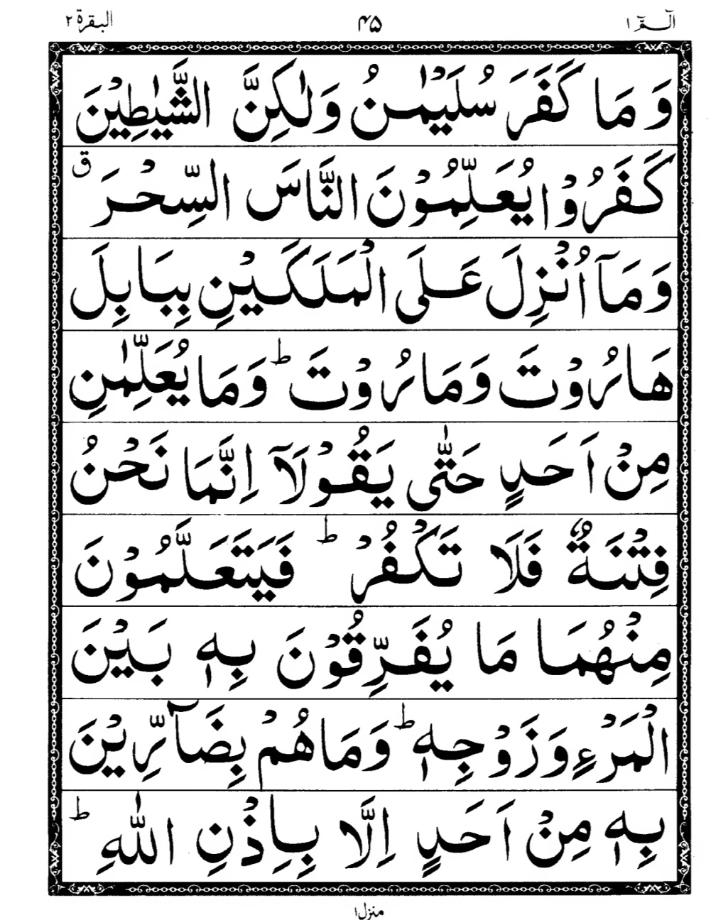 الٓـمّٓ ١ ۴۵ البقرة ٢
وَ مَا كَفَرَ سُلَيْمٰنُ وَلٰكِنَّ الشَّيٰطِيْنَ
كَفَرُوْا يُعَلِّمُوْنَ النَّاسَ السِّحْرَ ۗق
وَمَآ اُنْزِلَ عَلَى الْمَلَكَيْنِ بِبَابِلَ
هَارُوْتَ وَمَارُوْتَ ؕ وَمَا يُعَلِّمٰنِ
مِنْ اَحَدٍ حَتّٰى يَقُوْلَاۤ اِنَّمَا نَحْنُ
فِتْنَةٌ فَلَا تَكْفُرْ ؕ فَيَتَعَلَّمُوْنَ
مِنْهُمَا مَا يُفَرِّقُوْنَ بِهٖ بَيْنَ
الْمَرْءِ وَزَوْجِهٖ ؕ وَمَا هُمْ بِضَآرِّيْنَ
بِهٖ مِنْ اَحَدٍ اِلَّا بِاِذْنِ اللّٰهِ ؕ
منزل١